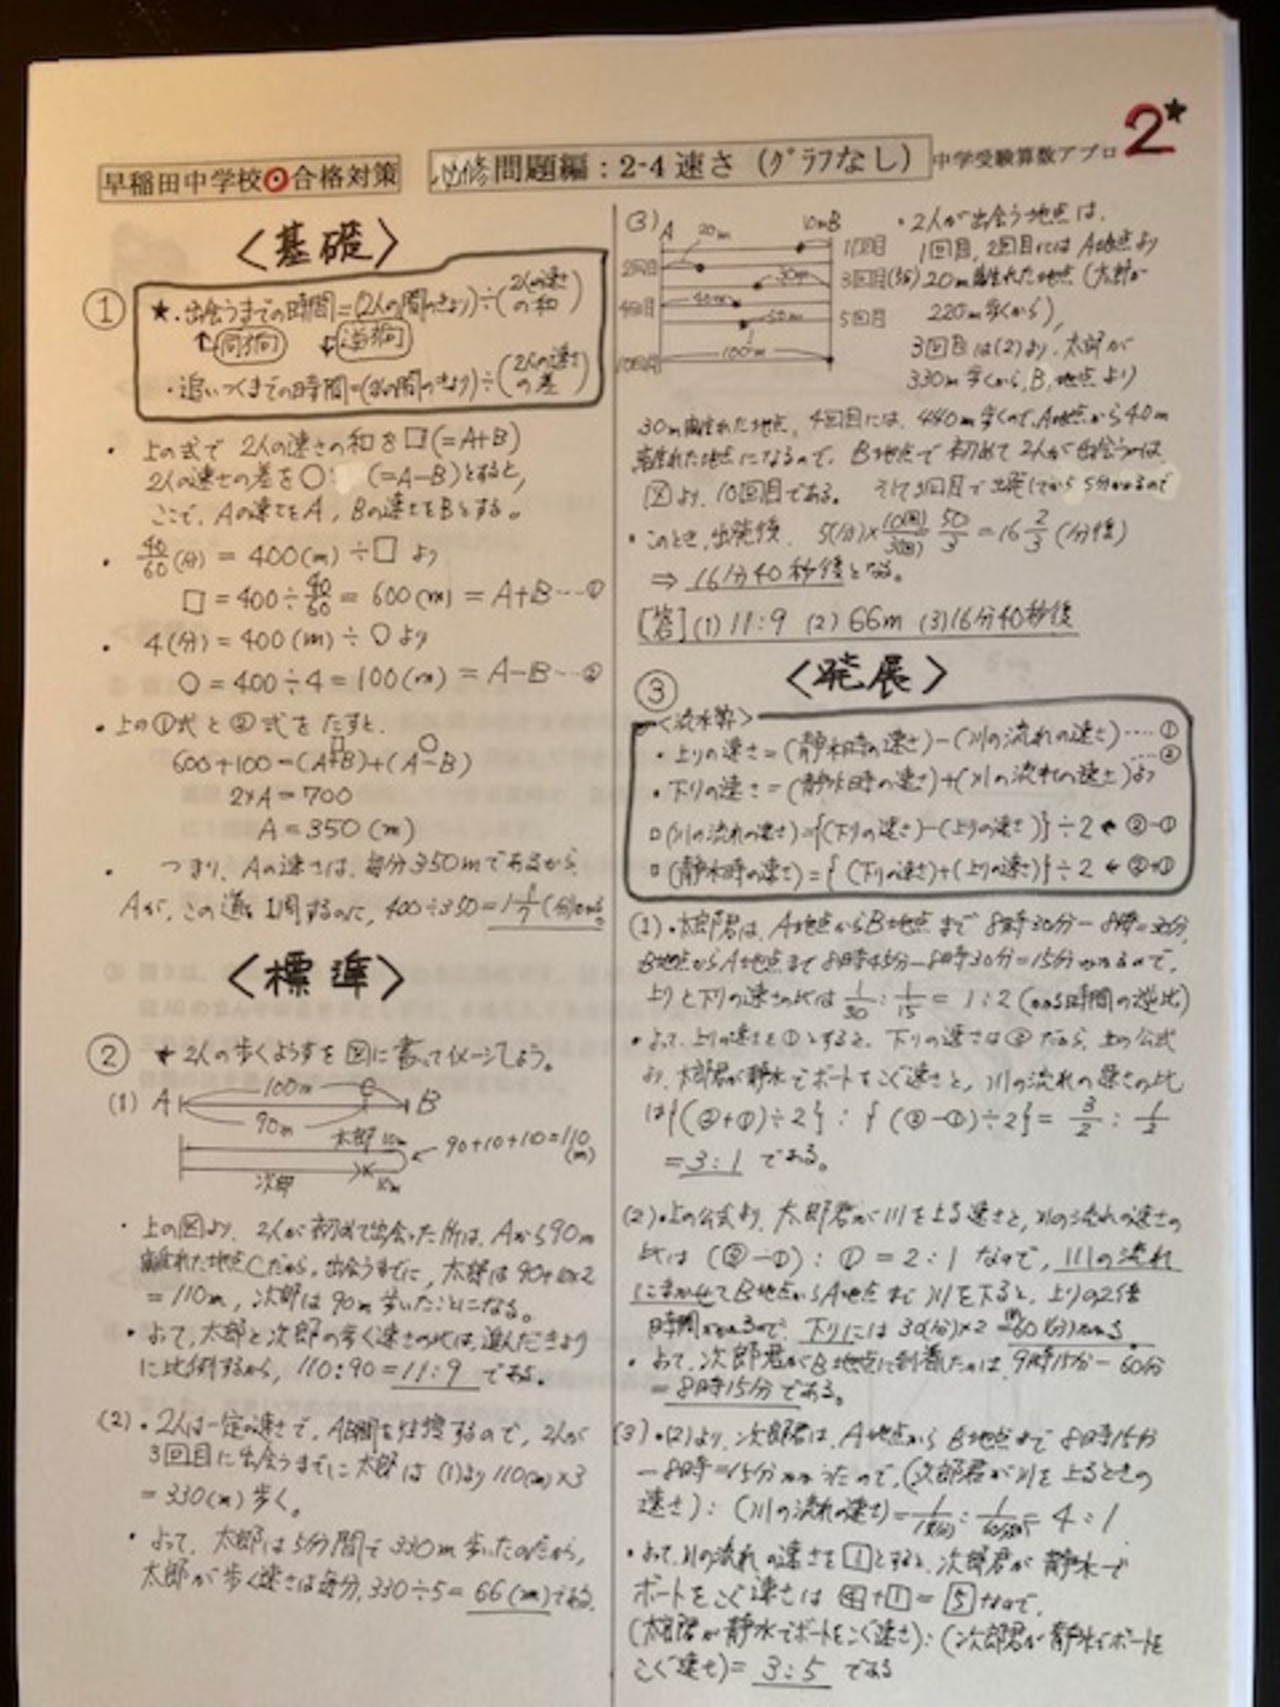 早稲田中学校◉合格対策
必修問題編：2-4 速さ（グラフなし）
中学受験算数アプロ
2★
〈基礎〉
① ★・出会うまでの時間=(2人の間のきょり)÷(2人の速さの和)
同じ向 逆向
・追いつくまでの時間=(2人の間のきょり)÷(2人の速さの差)
・上の式で 2人の速さの和を□(=A+B)
2人の速さの差を○ (=A−B)とすると,
ここで, Aの速さをA, Bの速さをBとする。
・40/60(分) = 400(m) ÷ □ より
□ = 400÷40/60 = 600(m) = A+B…①
・4(分) = 400(m) ÷ ○より
○ = 400÷4 = 100(m) = A−B…②
・上の①式と②式をたすと,
600+100=(A+B)+(A−B)
2×A=700
A=350(m)
・つまり, Aの速さは, 毎分350mであるから,
Aが, この道を1周するのに, 400÷350=1 1/7(分)かかる
〈標準〉
② ★2人の歩くようすを図に書いてイメージしよう。
(1) A 100m C B
90m
太郎 10m 90+10+10=110(m)
次郎 10m
・上の図より, 2人が初めて出会った所は, Aから90m
離れた地点Cだから, 出会うまでに, 太郎は90+10×2
=110m, 次郎は90m歩いたことになる。
・よって, 太郎と次郎の歩く速さの比は, 進んだきょり
に比例するから, 110:90=11:9 である。
(2)・2人は一定の速さで, AB間を往復するので, 2人が
3回目に出会うまでに太郎は (1)より110(m)×3
=330(m) 歩く。
・よって, 太郎は5分間で330m歩いたのだから,
太郎が歩く速さは毎分, 330÷5=66(m)である。
(3) A 20m 10mB 1回目
2回目 30m 3回目
4回目 40m
50m 5回目
10回目 100m
・2人が出会う地点は,
1回目, 2回目にはA地点より
20m離れた地点(太郎が
220m歩くから),
3回目は(2)より, 太郎が
330m歩くから, B地点より
30m離れた地点, 4回目には, 440m歩くので, A地点から40m
離れた地点になるので, B地点で初めて2人が出会うのは,
図より, 10回目である。 そして3回目で出発してから5分かかるので
・このとき, 出発後, 5(分)×10(回)/3(回) 50/3=16 2/3(分後)
⇒ 16分40秒後となる。
[答](1) 11:9 (2) 66m (3)16分40秒後
〈発展〉
③ 〈流水算〉
・上りの速さ=(静水時の速さ)−(川の流れの速さ)……①
・下りの速さ=(静水時の速さ)+(川の流れの速さ)より ……②
□(川の流れの速さ)={(下りの速さ)−(上りの速さ)}÷2 ← ②−①
□(静水時の速さ)={(下りの速さ)+(上りの速さ)}÷2 ← ②+①
(1)・太郎君は, A地点からB地点まで 8時30分−8時=30分,
B地点からA地点まで8時45分−8時30分=15分かかるので,
上りと下りの速さの比は 1/30:1/15=1:2(かかる時間の逆比)
・よって, 上りの速さを①とすると, 下りの速さは②だから, 上の公式
より, 太郎君が静水でボートをこぐ速さと, 川の流れの速さの比
は{(②+①)÷2}:{(②−①)÷2}=3/2:1/2
=3:1 である。
(2)・上の公式より, 太郎君が川を上る速さと, 川の流れの速さの
比は (②−①):①=2:1 なので, 川の流れ
にまかせてB地点からA地点まで川を下ると, 上りの2倍
時間がかかるので, 下りには30(分)×2=60(分)かかる。
・よって, 次郎君がB地点に到着したのは, 9時15分−60分
=8時15分である。
(3)・(2)より, 次郎君は, A地点からB地点まで8時15分
−8時=15分かかったので, (次郎君が川を上るときの
速さ):(川の流れの速さ)=1/15(分):1/60(分)=4:1
・よって, 川の流れの速さを1とすると, 次郎君が静水で
ボートをこぐ速さは 4+1=5なので,
(太郎君が静水でボートをこぐ速さ):(次郎君が静水でボートを
こぐ速さ)=3:5 である